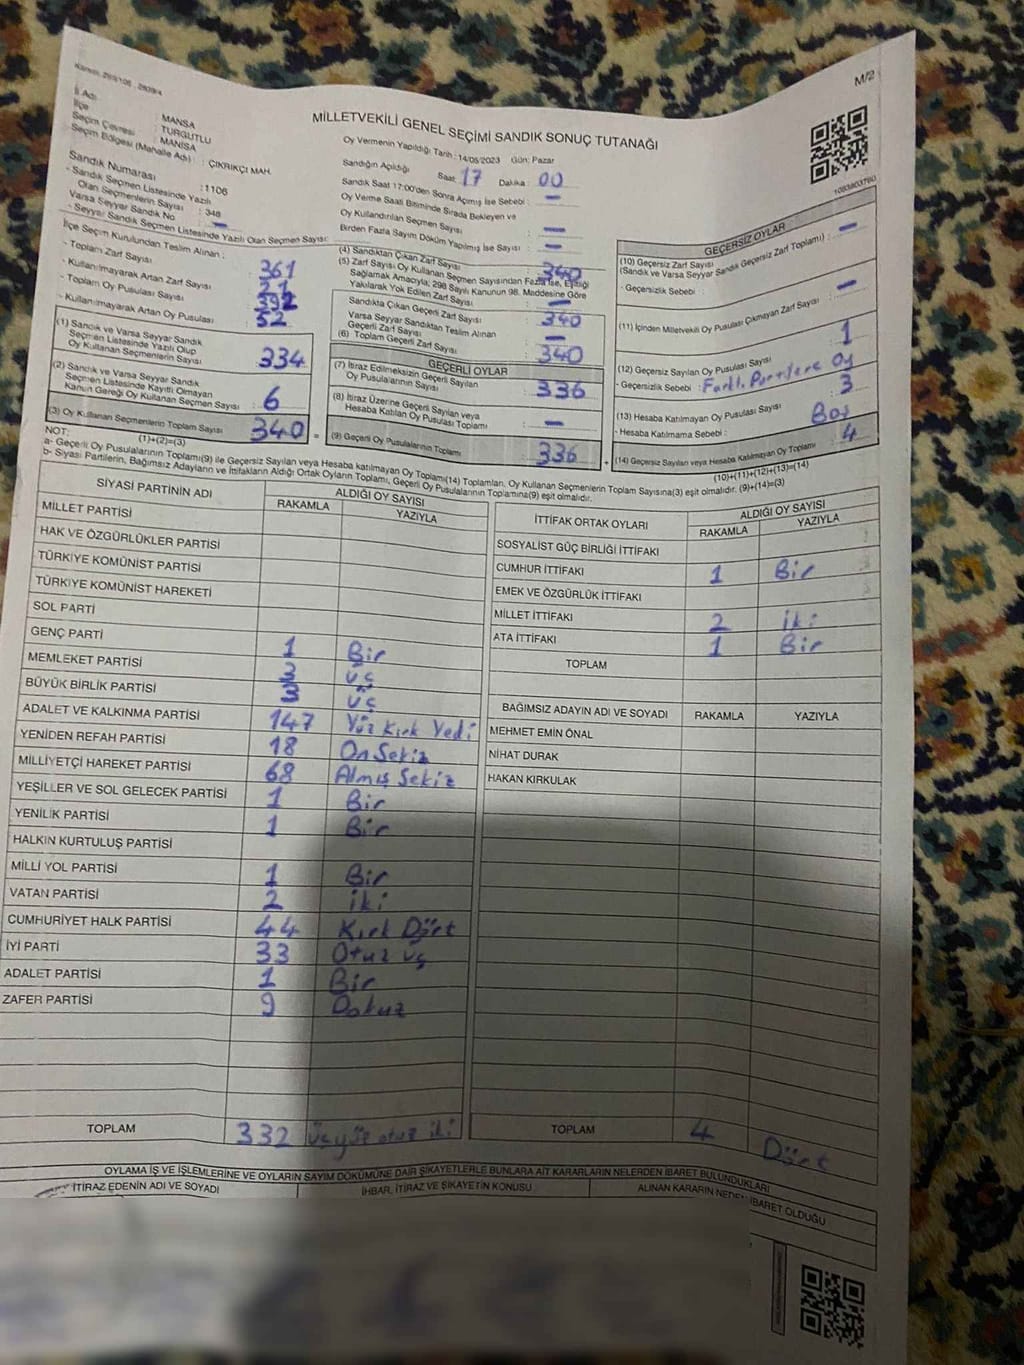 M/2
MİLLETVEKİLİ GENEL SEÇİMİ SANDIK SONUÇ TUTANAĞI
İl Adı : MANİSA
İlçe : TURGUTLU
Seçim Çevresi : MANİSA
Seçim Bölgesi (Mahalle Adı) : ÇIKRIKÇI MAH.
Sandık Numarası : 1106
- Sandık Seçmen Listesinde Yazılı
Olan Seçmenlerin Sayısı : 348
Varsa Seyyar Sandık No : -
- Seyyar Sandık Seçmen Listesinde Yazılı Olan Seçmen Sayısı:
Oy Vermenin Yapıldığı Tarih : 14/05/2023 Gün: Pazar
Sandığın Açıldığı Saat: 17 Dakika: 00
Sandık Saat 17:00'den Sonra Açılmış İse Sebebi : -
Oy Verme Saati Bitiminde Sırada Bekleyen ve
Oy Kullandırılan Seçmen Sayısı : -
Birden Fazla Sayım Döküm Yapılmış İse Sayısı : -
1083803760
İlçe Seçim Kurulundan Teslim Alınan :
- Toplam Zarf Sayısı : 361
- Kullanılmayarak Artan Zarf Sayısı : 21
- Toplam Oy Pusulası Sayısı : 392
- Kullanılmayarak Artan Oy Pusulası : 52
(1) Sandık ve Varsa Seyyar Sandık
Seçmen Listesinde Yazılı Olup
Oy Kullanan Seçmenlerin Sayısı : 334
(2) Sandık ve Varsa Seyyar Sandık
Seçmen Listesinde Kayıtlı Olmayan
Kanun Gereği Oy Kullanan Seçmen Sayısı : 6
(3) Oy Kullanan Seçmenlerin Toplam Sayısı : 340 =
(1)+(2)=(3)
(4) Sandıktan Çıkan Zarf Sayısı : 340
(5) Zarf Sayısı Oy Kullanan Seçmen Sayısından Fazla İse, Eşitliği
Sağlamak Amacıyla; 298 Sayılı Kanunun 98. Maddesine Göre
Yakılarak Yok Edilen Zarf Sayısı : -
Sandıkta Çıkan Geçerli Zarf Sayısı : 340
Varsa Seyyar Sandıktan Teslim Alınan
Geçerli Zarf Sayısı : -
(6) Toplam Geçerli Zarf Sayısı : 340
GEÇERLİ OYLAR
(7) İtiraz Edilmeksizin Geçerli Sayılan
Oy Pusulalarının Sayısı : 336
(8) İtiraz Üzerine Geçerli Sayılan veya
Hesaba Katılan Oy Pusulası Toplamı : -
(9) Geçerli Oy Pusulalarının Toplamı : 336 +
GEÇERSİZ OYLAR
(10) Geçersiz Zarf Sayısı
(Sandık ve Varsa Seyyar Sandık Geçersiz Zarf Toplamı) : -
- Geçersizlik Sebebi :
(11) İçinden Milletvekili Oy Pusulası Çıkmayan Zarf Sayısı : -
(12) Geçersiz Sayılan Oy Pusulası Sayısı : 1
- Geçersizlik Sebebi : Farklı Partilere Oy
(13) Hesaba Katılmayan Oy Pusulası Sayısı : 3
- Hesaba Katılmama Sebebi : Boş
(14) Geçersiz Sayılan veya Hesaba Katılmayan Oy Toplamı : 4
(10)+(11)+(12)+(13)=(14)
NOT:
a- Geçerli Oy Pusulalarının Toplamı(9) ile Geçersiz Sayılan veya Hesaba katılmayan Oy Toplamı(14) Toplamları, Oy Kullanan Seçmenlerin Toplam Sayısına(3) eşit olmalıdır. (9)+(14)=(3)
b- Siyasi Partilerin, Bağımsız Adayların ve İttifakların Aldığı Ortak Oyların Toplamı, Geçerli Oy Pusulalarının Toplamına(9) eşit olmalıdır.
SİYASİ PARTİNİN ADI ALDIĞI OY SAYISI
RAKAMLA YAZIYLA
MİLLET PARTİSİ
HAK VE ÖZGÜRLÜKLER PARTİSİ
TÜRKİYE KOMÜNİST PARTİSİ
TÜRKİYE KOMÜNİST HAREKETİ
SOL PARTİ
GENÇ PARTİ 1 Bir
MEMLEKET PARTİSİ 3 üç
BÜYÜK BİRLİK PARTİSİ 3 üç
ADALET VE KALKINMA PARTİSİ 147 Yüz Kırk Yedi
YENİDEN REFAH PARTİSİ 18 On Sekiz
MİLLİYETÇİ HAREKET PARTİSİ 68 Almış Sekiz
YEŞİLLER VE SOL GELECEK PARTİSİ 1 Bir
YENİLİK PARTİSİ 1 Bir
HALKIN KURTULUŞ PARTİSİ
MİLLİ YOL PARTİSİ 1 Bir
VATAN PARTİSİ 2 iki
CUMHURİYET HALK PARTİSİ 44 Kırk Dört
İYİ PARTİ 33 Otuz üç
ADALET PARTİSİ 1 Bir
ZAFER PARTİSİ 9 Dokuz
TOPLAM 332 üçyüz otuz iki
İTTİFAK ORTAK OYLARI ALDIĞI OY SAYISI
RAKAMLA YAZIYLA
SOSYALİST GÜÇ BİRLİĞİ İTTİFAKI
CUMHUR İTTİFAKI 1 Bir
EMEK VE ÖZGÜRLÜK İTTİFAKI
MİLLET İTTİFAKI 2 iki
ATA İTTİFAKI 1 Bir
TOPLAM
BAĞIMSIZ ADAYIN ADI VE SOYADI RAKAMLA YAZIYLA
MEHMET EMİN ÖNAL
NİHAT DURAK
HAKAN KIRKULAK
TOPLAM 4 Dört
OYLAMA İŞ VE İŞLEMLERİNE VE OYLARIN SAYIM DÖKÜMÜNE DAİR ŞİKAYETLERLE BUNLARA AİT KARARLARIN NELERDEN İBARET BULUNDUKLARI
İTİRAZ EDENİN ADI VE SOYADI İHBAR, İTİRAZ VE ŞİKAYETİN KONUSU ALINAN KARARIN NEDEN İBARET OLDUĞU